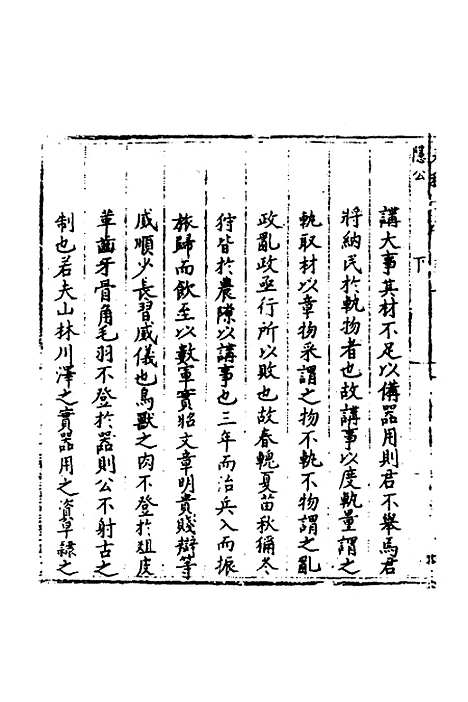 隱公
下
講大事其材不足以備器用則君不舉焉君
將納民於軌物者也故講事以度軌量謂之
軌取材以章物采謂之物不軌不物謂之亂
政亂政亟行所以敗也故春蒐夏苗秋獮冬
狩皆於農隙以講事也三年而治兵入而振
旅歸而飲至以數軍實昭文章明貴賤辯等
威順少長習威儀也鳥獸之肉不登於俎皮
革齒牙骨角毛羽不登於器則公不射古之
制也若夫山林川澤之實器用之資皁隸之